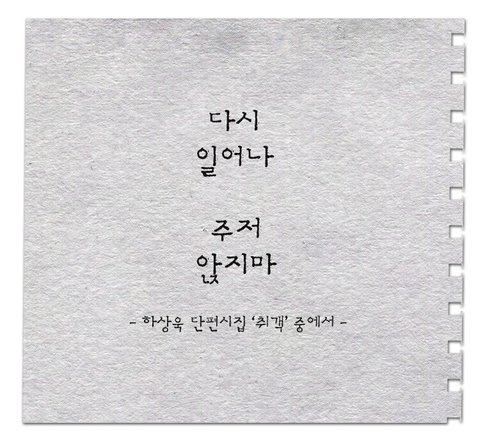 다시
일어나
주저
앉지마
- 하상욱 단편시집 '취객' 중에서 -